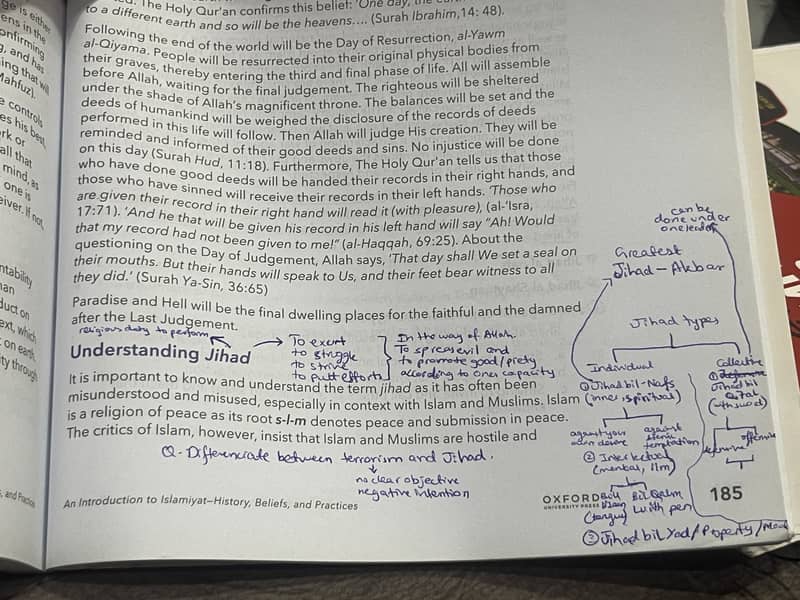 The Holy Qur'an confirms this belief: 'One day, the
to a different earth and so will be the heavens.... (Surah Ibrahim, 14: 48).
Following the end of the world will be the Day of Resurrection, al-Yawm
al-Qiyama. People will be resurrected into their original physical bodies from
their graves, thereby entering the third and final phase of life. All will assemble
before Allah, waiting for the final judgement. The righteous will be sheltered
under the shade of Allah's magnificent throne. The balances will be set and the
deeds of humankind will be weighed the disclosure of the records of deeds
performed in this life will follow. Then Allah will judge His creation. They will be
reminded and informed of their good deeds and sins. No injustice will be done
on this day (Surah Hud, 11:18). Furthermore, The Holy Qur'an tells us that those
who have done good deeds will be handed their records in their right hands, and
those who have sinned will receive their records in their left hands. 'Those who
are given their record in their right hand will read it (with pleasure), (al-'Isra,
17:71). 'And he that will be given his record in his left hand will say "Ah! Would
that my record had not been given to me!" (al-Haqqah, 69:25). About the
questioning on the Day of Judgement, Allah says, 'That day shall We set a seal on
their mouths. But their hands will speak to Us, and their feet bear witness to all
they did.' (Surah Ya-Sin, 36:65)
Paradise and Hell will be the final dwelling places for the faithful and the damned
after the Last Judgement.
religious duty to perform
Understanding Jihad
To exert
to struggle
to strive
to put efforts
In the way of Allah.
To spress evil and
to promote good/piety
according to ones capacity
It is important to know and understand the term jihad as it has often been
misunderstood and misused, especially in context with Islam and Muslims. Islam
is a religion of peace as its root s-l-m denotes peace and submission in peace.
The critics of Islam, however, insist that Islam and Muslims are hostile and
Q- Differenciate between terrorism and Jihad.
no clear objective
negative intention
can be
done under
one leader
Greatest
Jihad-Akbar
Jihad types
Individual
① Jihad bil-Nafs
(inner spiritual)
against your
own desire
against
temptation
② Intellectual
(mental, Ilm)
Bil
(tongue)
Bil Qalm
with pen
③ Jihad bil Yad/Property/
Collective
①
Jihad bil
Qital
(with sword)
defensive
offensive
An Introduction to Islamiyat–History, Beliefs, and Practices
OXFORD
UNIVERSITY PRESS
185